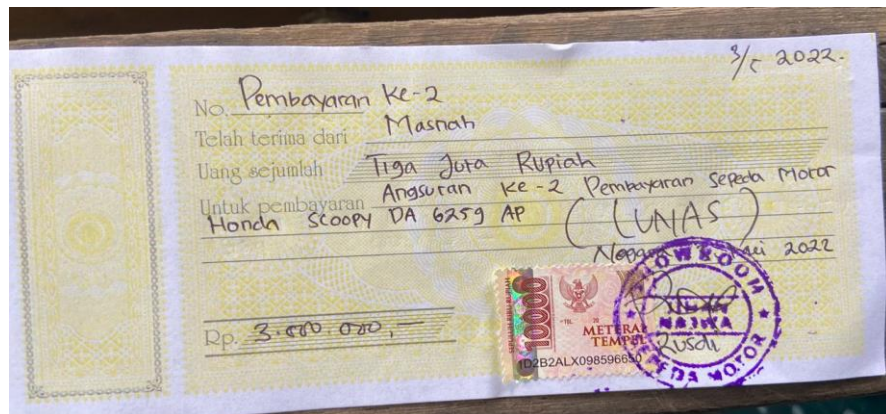 3/5 2022.
No. Pembayaran Ke-2
Telah terima dari Masnah
Uang sejumlah Tiga Juta Rupiah
Untuk pembayaran Angsuran Ke-2 Pembayaran Sepeda Motor
Honda Scoopy DA 6259 AP (LUNAS)
2022
Rp. 3.000.000,-
10000
METERAI
TEMPEL
1D2B2ALX098596650
SHOWROOM
NAJWA
SEPEDA MOTOR
Rusdi